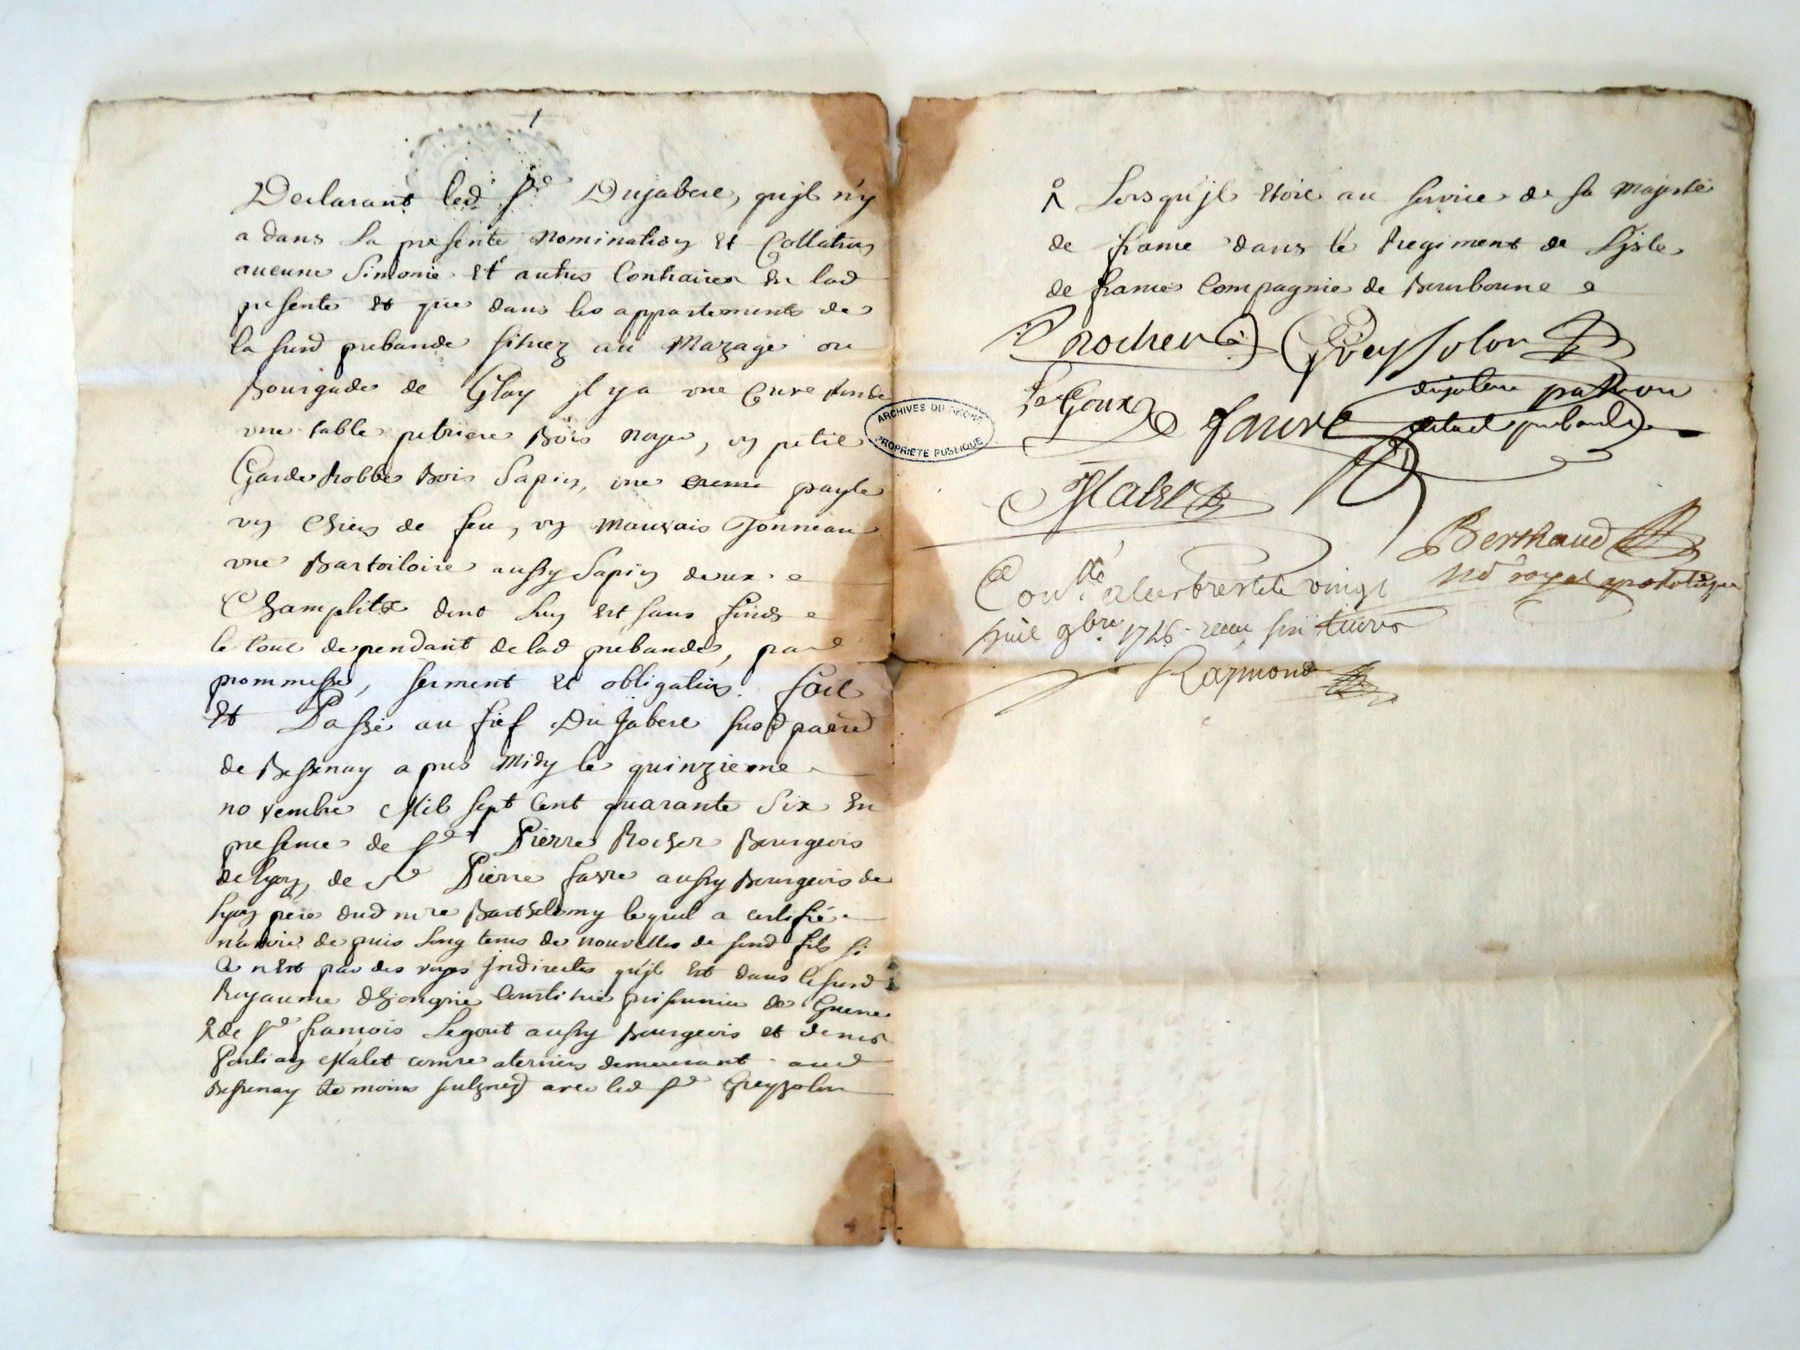 Declarant led Sr Dujabere, qu'jl n'y
a dans la presente nomination et Collation
aucune Simonie et autres Contraires en lad
presente et que dans les appartements de
la susd prebande situez au Mazage ou
Bourgade de Glay jl y a une Cuve
une table petriere Bois noyer, un petit
Garderobbe Bois Sapin, une payle
un Chien de feu, un mauvais Tonneau
une aussy Sapin deux
dont luy est sans fonds
le tout dependant de lad prebande, par
prommesse, serment et obligation. fait
et Passé au fief Du Jabere susd parre
de Bessenay apres Midy le quinzieme
novembre Mil sept Cent quarante Six En
presence de Sr Pierre Rocher Bourgeois
de Lyon, de Sr Pierre favre aussy Bourgeois de
Lyon père dud mre Barthelemy lequel a certifié
n'avoir depuis long tems de nouvelles de sond fils si
Ce n'est par des voyes jndirectes qu'jl est dans le susd
Royaume d'hongrie Constitué prisonnier de Guerre
de Sr françois Legout aussy Bourgeois et de mre
Malet demeurant aud
Bessenay temoins soulznez avec led Sr Greyzolon
Lorsqu'jl etoit au service de sa Majesté
de france dans le Regiment de L'jsle
de france Compagnie de Bourbonne
Rocher Greysolon
dujabere patron
LeGoux faure
de lad prebande
Malet
Berthaud
No royal apostolique
Conté a l'arbresle le vingt
huit 9bre 1746 recu six livres
Raymond
ARCHIVES DU RHONE
PROPRIETE PUBLIQUE